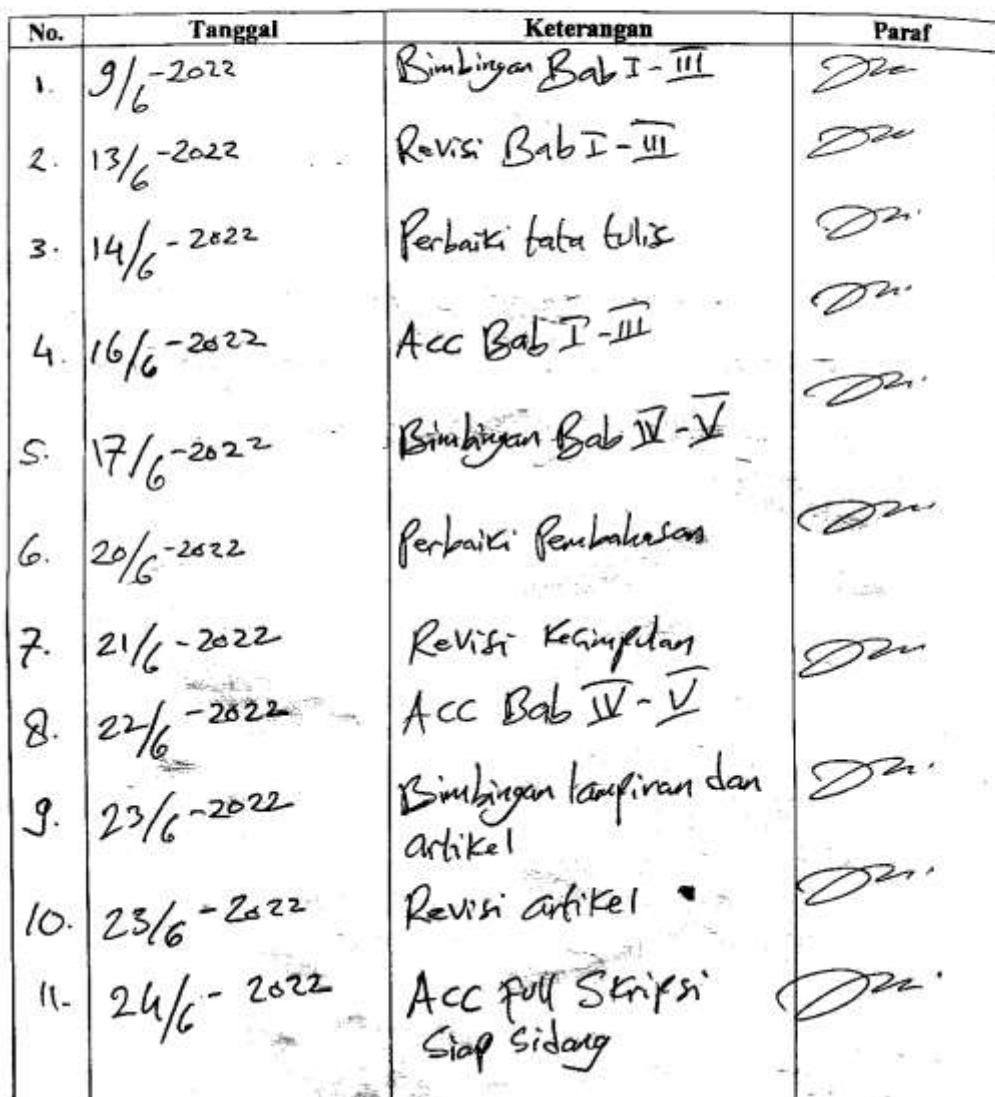 No. Tanggal Keterangan Paraf
1. 9/6-2022 Bimbingan Bab I-III
2. 13/6-2022 Revisi Bab I-III
3. 14/6-2022 Perbaiki tata tulis
4. 16/6-2022 Acc Bab I-III
5. 17/6-2022 Bimbingan Bab IV-V
6. 20/6-2022 Perbaiki Pembahasan
7. 21/6-2022 Revisi Kesimpulan
8. 22/6-2022 Acc Bab IV-V
9. 23/6-2022 Bimbingan lampiran dan
artikel
10. 23/6-2022 Revisi artikel
11. 24/6-2022 Acc full Skripsi
Siap Sidang